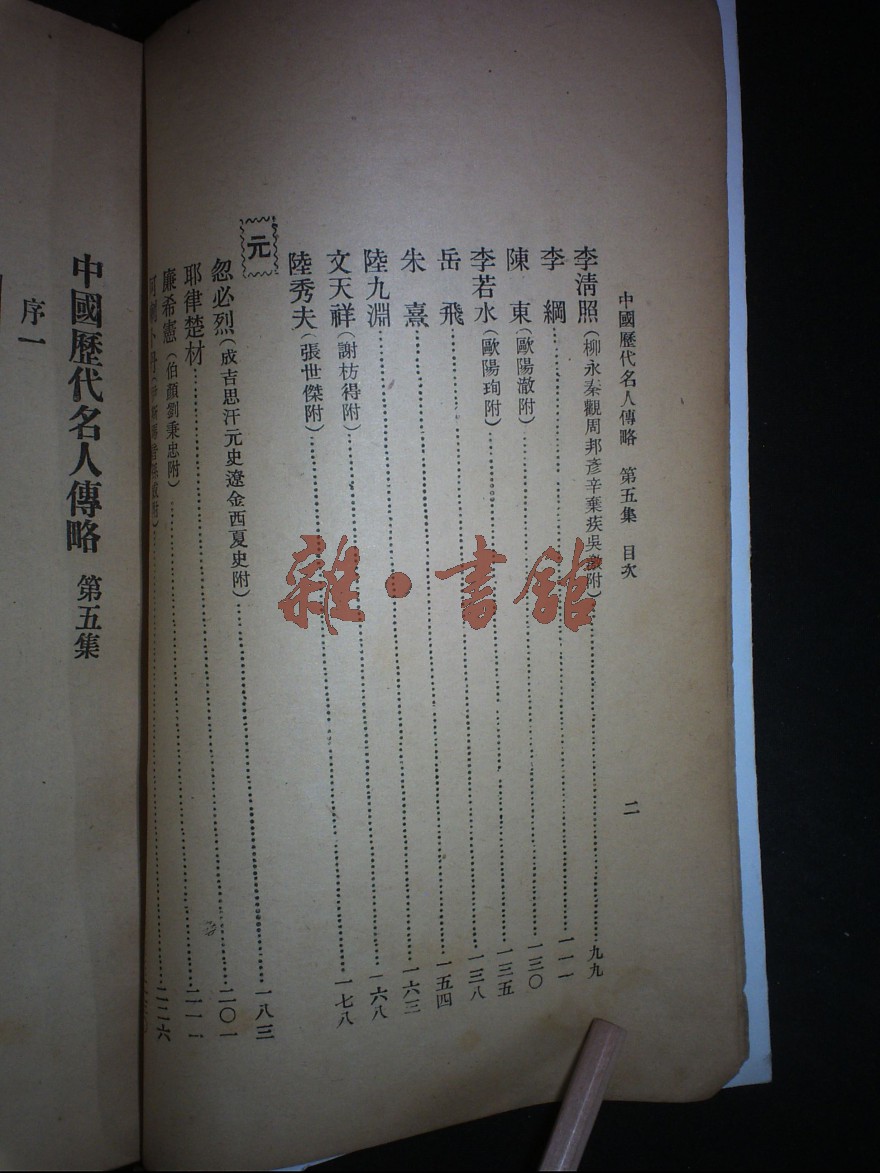 中國歷代名人傳略 第五集 目次 二
李清照(柳永秦觀周邦彥辛棄疾吳激附)九九
李綱 一一一
陳東(歐陽澈附)一三〇
李若水(歐陽珣附)一三五
岳飛 一三八
朱熹 一五四
陸九淵 一六三
文天祥(謝枋得附)一六八
陸秀夫(張世傑附)一七八
元
忽必烈(成吉思汗元史遼金西夏史附)一八三
耶律楚材 二〇一
廉希憲(伯顏劉秉忠附)二一一
二二六
中國歷代名人傳略 第五集
序一
雜·書館